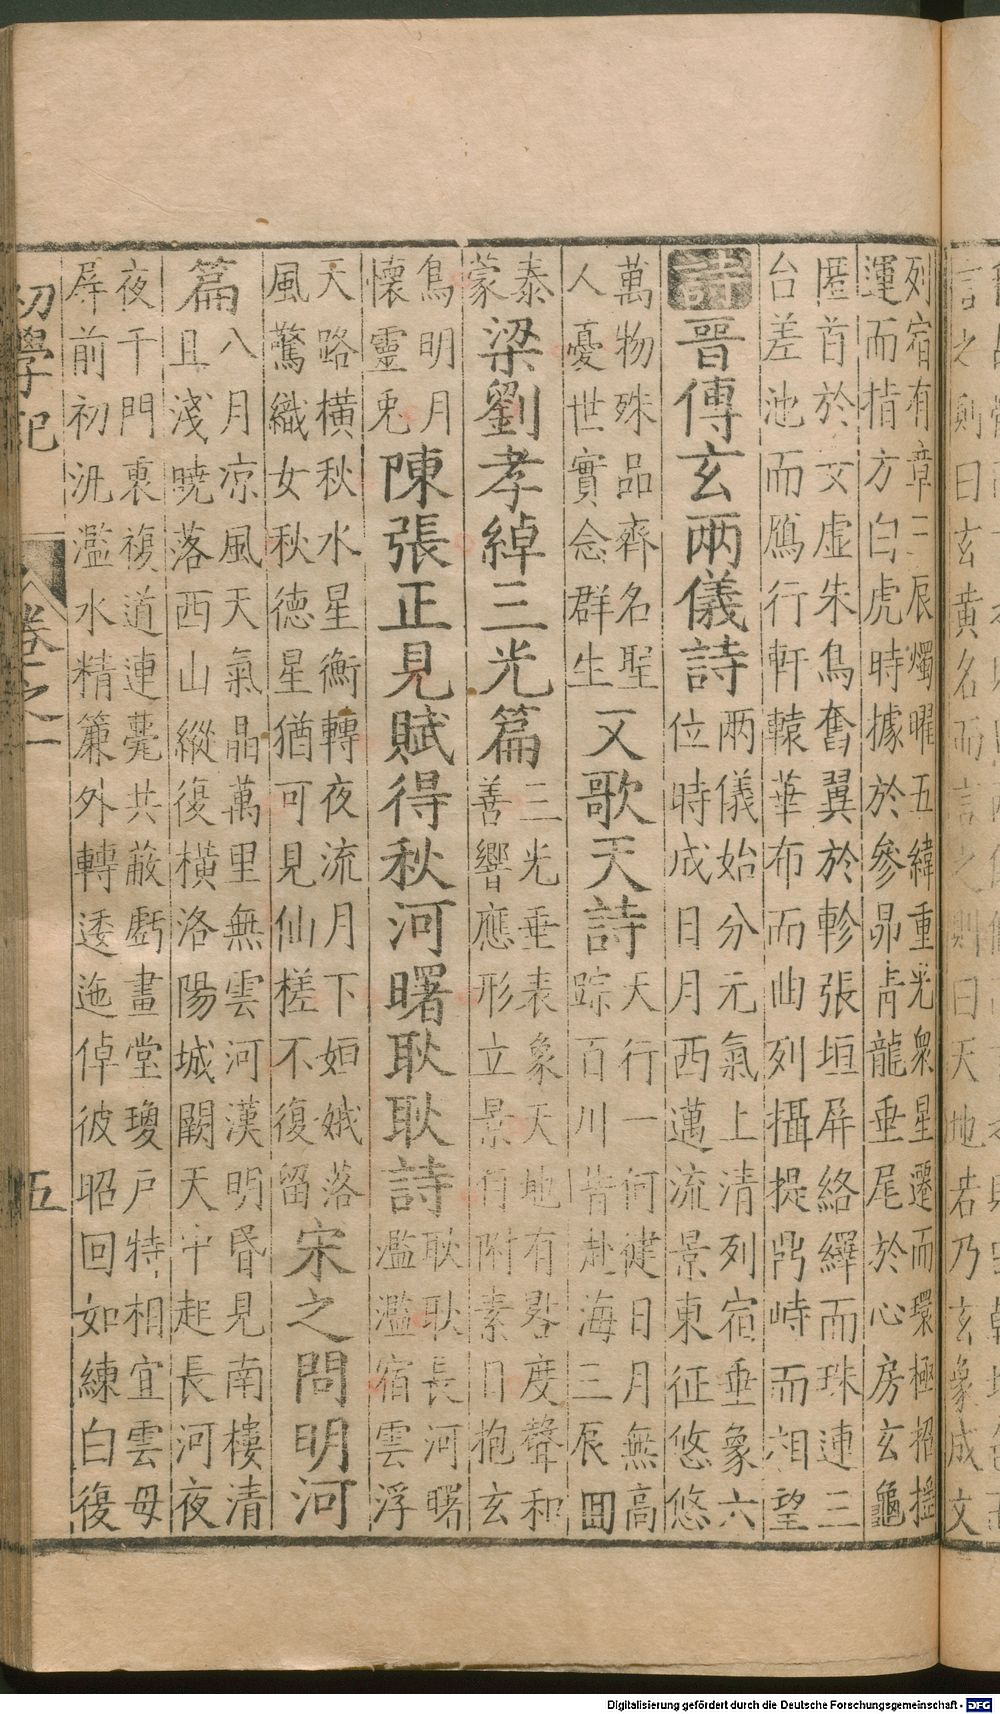 言之則曰玄黄名而言之則曰天地若乃玄象成文
列宿有章三辰燭曜五緯重光衆星遷而環極招摇
運而楷方白虎時據於參昴青龍垂尾於心房玄龜
匿首於文虛朱鳥奮翼於軫張垣屏絡繹而珠連三
台差池而鴈行軒轅華布而曲列攝提鼎峙而相望
詩晉傳玄兩儀詩
兩儀始分元氣上清列宿垂象六
位時成日月西邁流景東征悠悠
萬物殊品齊名聖
人憂世實念群生
又歌天詩
天行一何健日月無高
踪百川皆赴海三辰囬
泰
蒙
梁劉孝綽三光篇
三光垂表象天地有晷度聲和
善響應形立景自附素日抱玄
鳥明月
懷靈兎
陳張正見賦得秋河曙耿耿詩
耿耿長河曙
濫濫宿雲浮
天路橫秋水星衡轉夜流月下姮娥落
風驚織女秋德星猶可見仙槎不復留
宋之問明河
篇
八月凉風天氣晶萬里無雲河漢明昏見南樓清
且淺曉落西山縱復橫洛陽城闕天中起長河夜
夜千門裏複道連甍共蔽虧畫堂瓊戶特相宜雲母
屏前初汎濫水精簾外轉逶迤倬彼昭回如練白復
初學記 卷之一 五
Digitalisierung gefördert durch die Deutsche Forschungsgemeinschaft - DFG